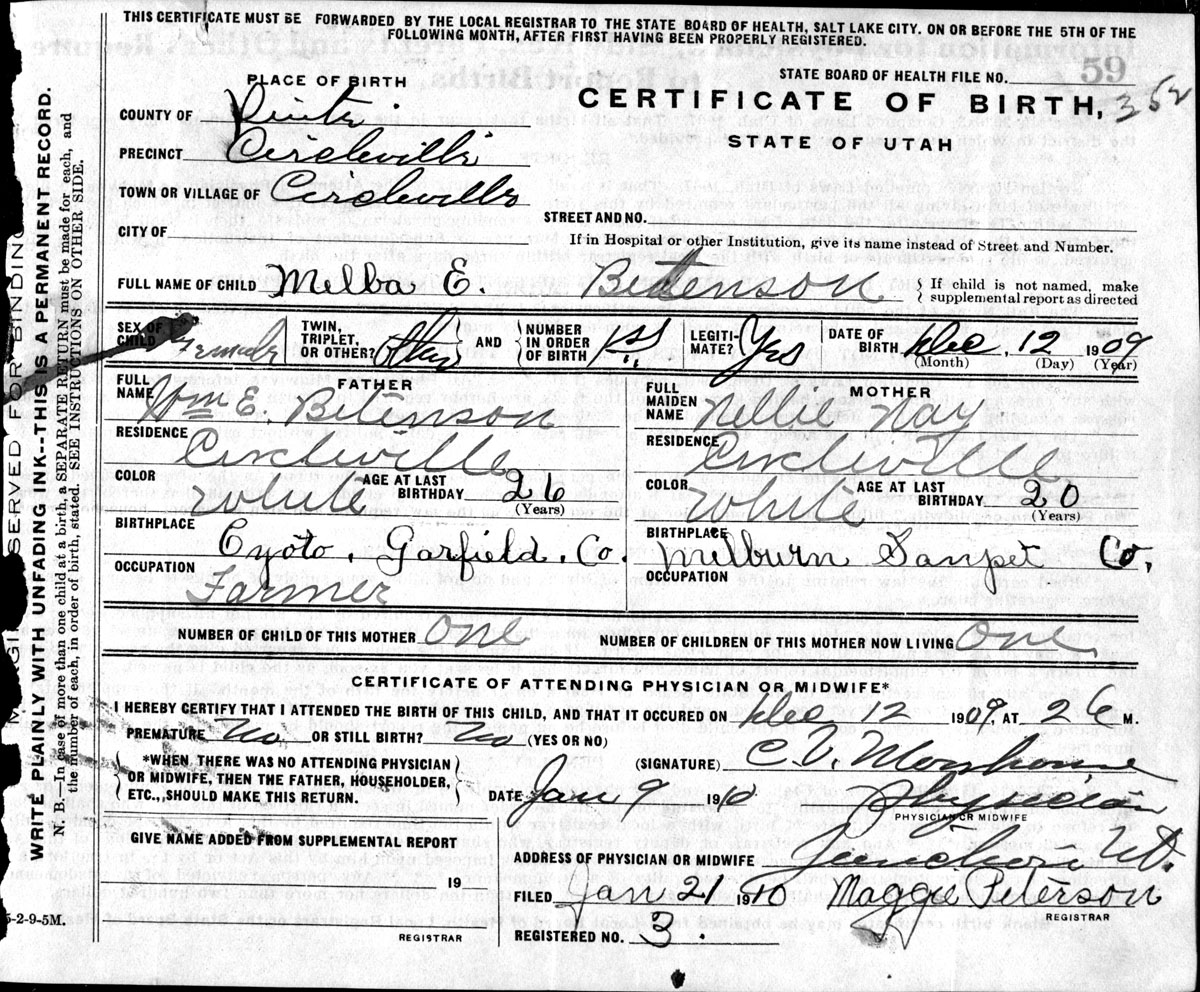 THIS CERTIFICATE MUST BE FORWARDED BY THE LOCAL REGISTRAR TO THE STATE BOARD OF HEALTH, SALT LAKE CITY. ON OR BEFORE THE 5TH OF THE
FOLLOWING MONTH, AFTER FIRST HAVING BEEN PROPERLY REGISTERED.
PLACE OF BIRTH
STATE BOARD OF HEALTH FILE NO. 59
CERTIFICATE OF BIRTH, 352
STATE OF UTAH
COUNTY OF
PRECINCT Circleville
TOWN OR VILLAGE OF Circleville
STREET AND NO.
CITY OF
If in Hospital or other Institution, give its name instead of Street and Number.
FULL NAME OF CHILD Melba E. Betenson
If child is not named, make
supplemental report as directed
SEX OF CHILD Female
TWIN, TRIPLET, OR OTHER?
AND NUMBER IN ORDER OF BIRTH 1st
LEGITI-MATE? Yes
DATE OF BIRTH Dec. 12 1909
(Month) (Day) (Year)
FATHER
FULL NAME Wm E. Betenson
RESIDENCE Circleville
COLOR White AGE AT LAST BIRTHDAY 26
(Years)
BIRTHPLACE
Cyoto, Garfield. Co.
OCCUPATION
Farmer
MOTHER
FULL MAIDEN NAME Nellie Nay
RESIDENCE Circleville
COLOR White AGE AT LAST BIRTHDAY 20
(Years)
BIRTHPLACE
Milburn Sanpet Co.
OCCUPATION
NUMBER OF CHILD OF THIS MOTHER One
NUMBER OF CHILDREN OF THIS MOTHER NOW LIVING One
CERTIFICATE OF ATTENDING PHYSICIAN OR MIDWIFE*
I HEREBY CERTIFY THAT I ATTENDED THE BIRTH OF THIS CHILD, AND THAT IT OCCURED ON Dec 12 1909, AT 2 M.
PREMATURE No OR STILL BIRTH? No (YES OR NO)
*WHEN THERE WAS NO ATTENDING PHYSICIAN
OR MIDWIFE, THEN THE FATHER, HOUSEHOLDER,
ETC., SHOULD MAKE THIS RETURN.
(SIGNATURE) C.V.
DATE Jan 9 1910 Physician
PHYSICIAN OR MIDWIFE
GIVE NAME ADDED FROM SUPPLEMENTAL REPORT
19
REGISTRAR
ADDRESS OF PHYSICIAN OR MIDWIFE Junction Ut.
FILED Jan 21 1910 Maggie Peterson
REGISTRAR
REGISTERED NO. 3.
SERVED FOR BINDING
WRITE PLAINLY WITH UNFADING INK--THIS IS A PERMANENT RECORD.
N. B.—In case of more than one child at a birth, a SEPARATE RETURN must be made for each, and
the number of each, in order of birth, stated. SEE INSTRUCTIONS ON OTHER SIDE.
5-2-9-5M.